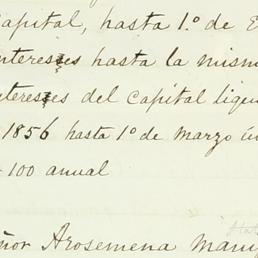 Capital, hasta 1.º de E
intereses hasta la mism
ntereses del Capital liqu
1856 hasta 1º de Marzo ú
100 anual
ñor Arosemena Man